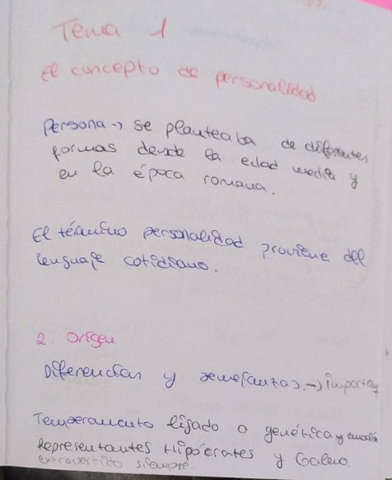 Tema 1
El concepto de personalidad
Persona → se planteaba de diferentes
formas desde la edad media y
en la época romana.
El término personalidad proviene del
lenguaje cotidiano.
2. Origen
Diferencias y semejantas. →
Temperamento ligado a genética y
Representantes Hipócrates y Galeno.
extrovertido siempre.